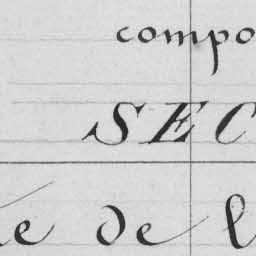 compo
SEC
e de l